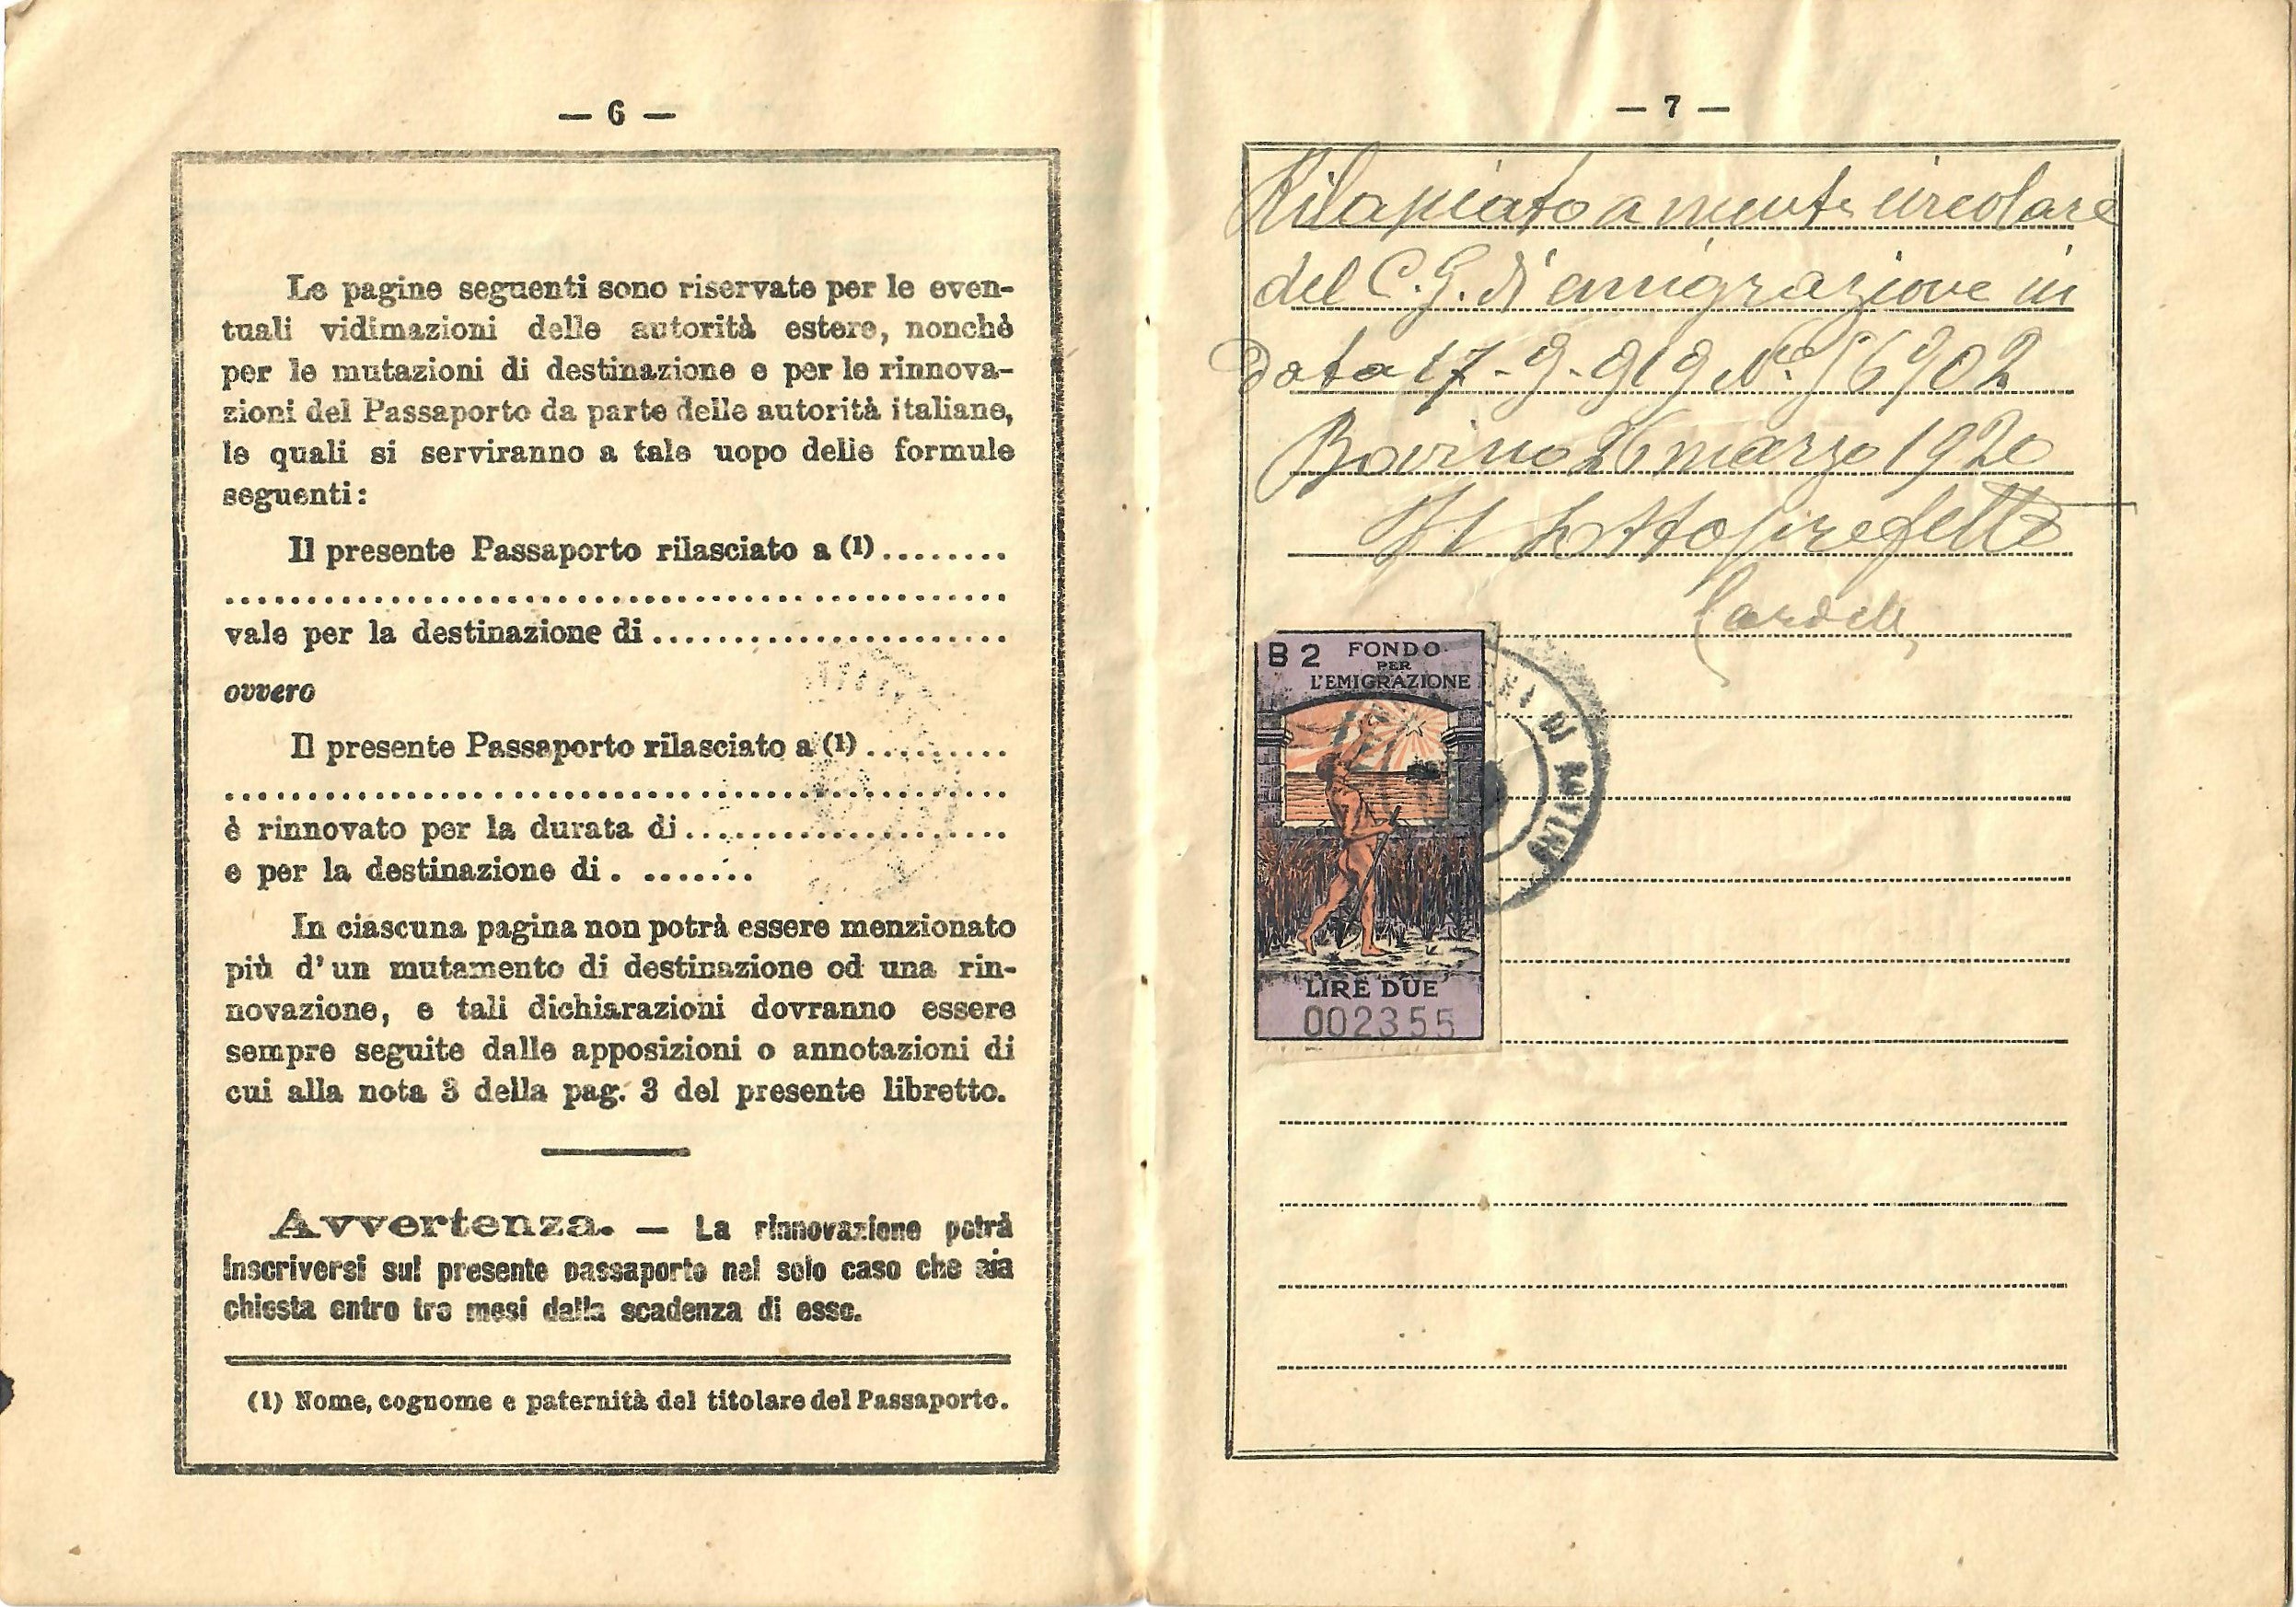 — 6 —
Le pagine seguenti sono riservate per le even-
tuali vidimazioni delle autorità estere, nonchè
per le mutazioni di destinazione e per le rinnova-
zioni del Passaporto da parte delle autorità italiane,
le quali si serviranno a tale uopo delle formule
seguenti:
Il presente Passaporto rilasciato a (1)........
................................................
vale per la destinazione di......................
ovvero
Il presente Passaporto rilasciato a (1).........
................................................
è rinnovato per la durata di....................
e per la destinazione di. .......
In ciascuna pagina non potrà essere menzionato
più d'un mutamento di destinazione od una rin-
novazione, e tali dichiarazioni dovranno essere
sempre seguite dalle apposizioni o annotazioni di
cui alla nota 3 della pag. 3 del presente libretto.
Avvertenza. — La rinnovazione potrà
inscriversi sul presente passaporto nel solo caso che sia
chiesta entro tre mesi dalla scadenza di esso.
(1) Nome, cognome e paternità del titolare del Passaporto.
— 7 —
Rilasciato a mente circolare
del C. G. di emigrazione in
Data 17-9-919 N.° 56902
Bovino 26 marzo 1920
Il Sottoprefetto
B 2 FONDO
PER
L'EMIGRAZIONE
LIRE DUE
002355
DI BOVINO